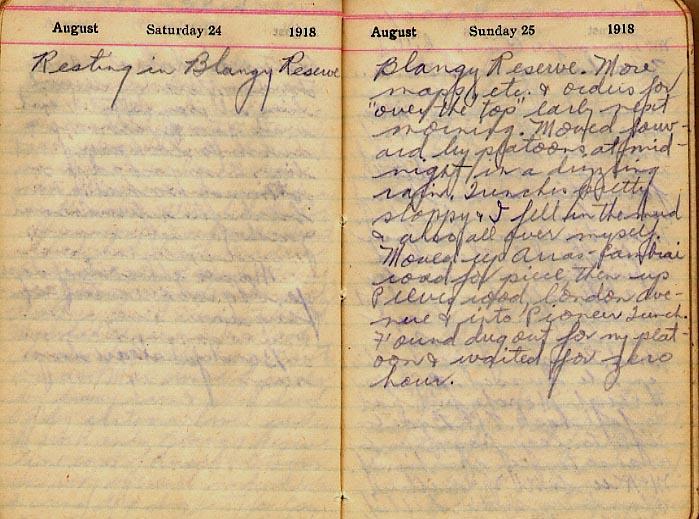 August Saturday 24 1918
Resting in Blangy Reserve
August Sunday 25 1918
Blangy Reserve. More
maps, etc. & orders for
"over the top" early next
morning. Moved forw-
ard by platoons at mid-
night in a drizzling
rain. Trenches pretty
sloppy & I fell in the mud
& also all over myself.
Moved up Arras-Cambrai
road for piece then up
road, London Ave-
nue & into Pioneer Trench.
Found dug out for my plat-
oon & waited for zero
hour.